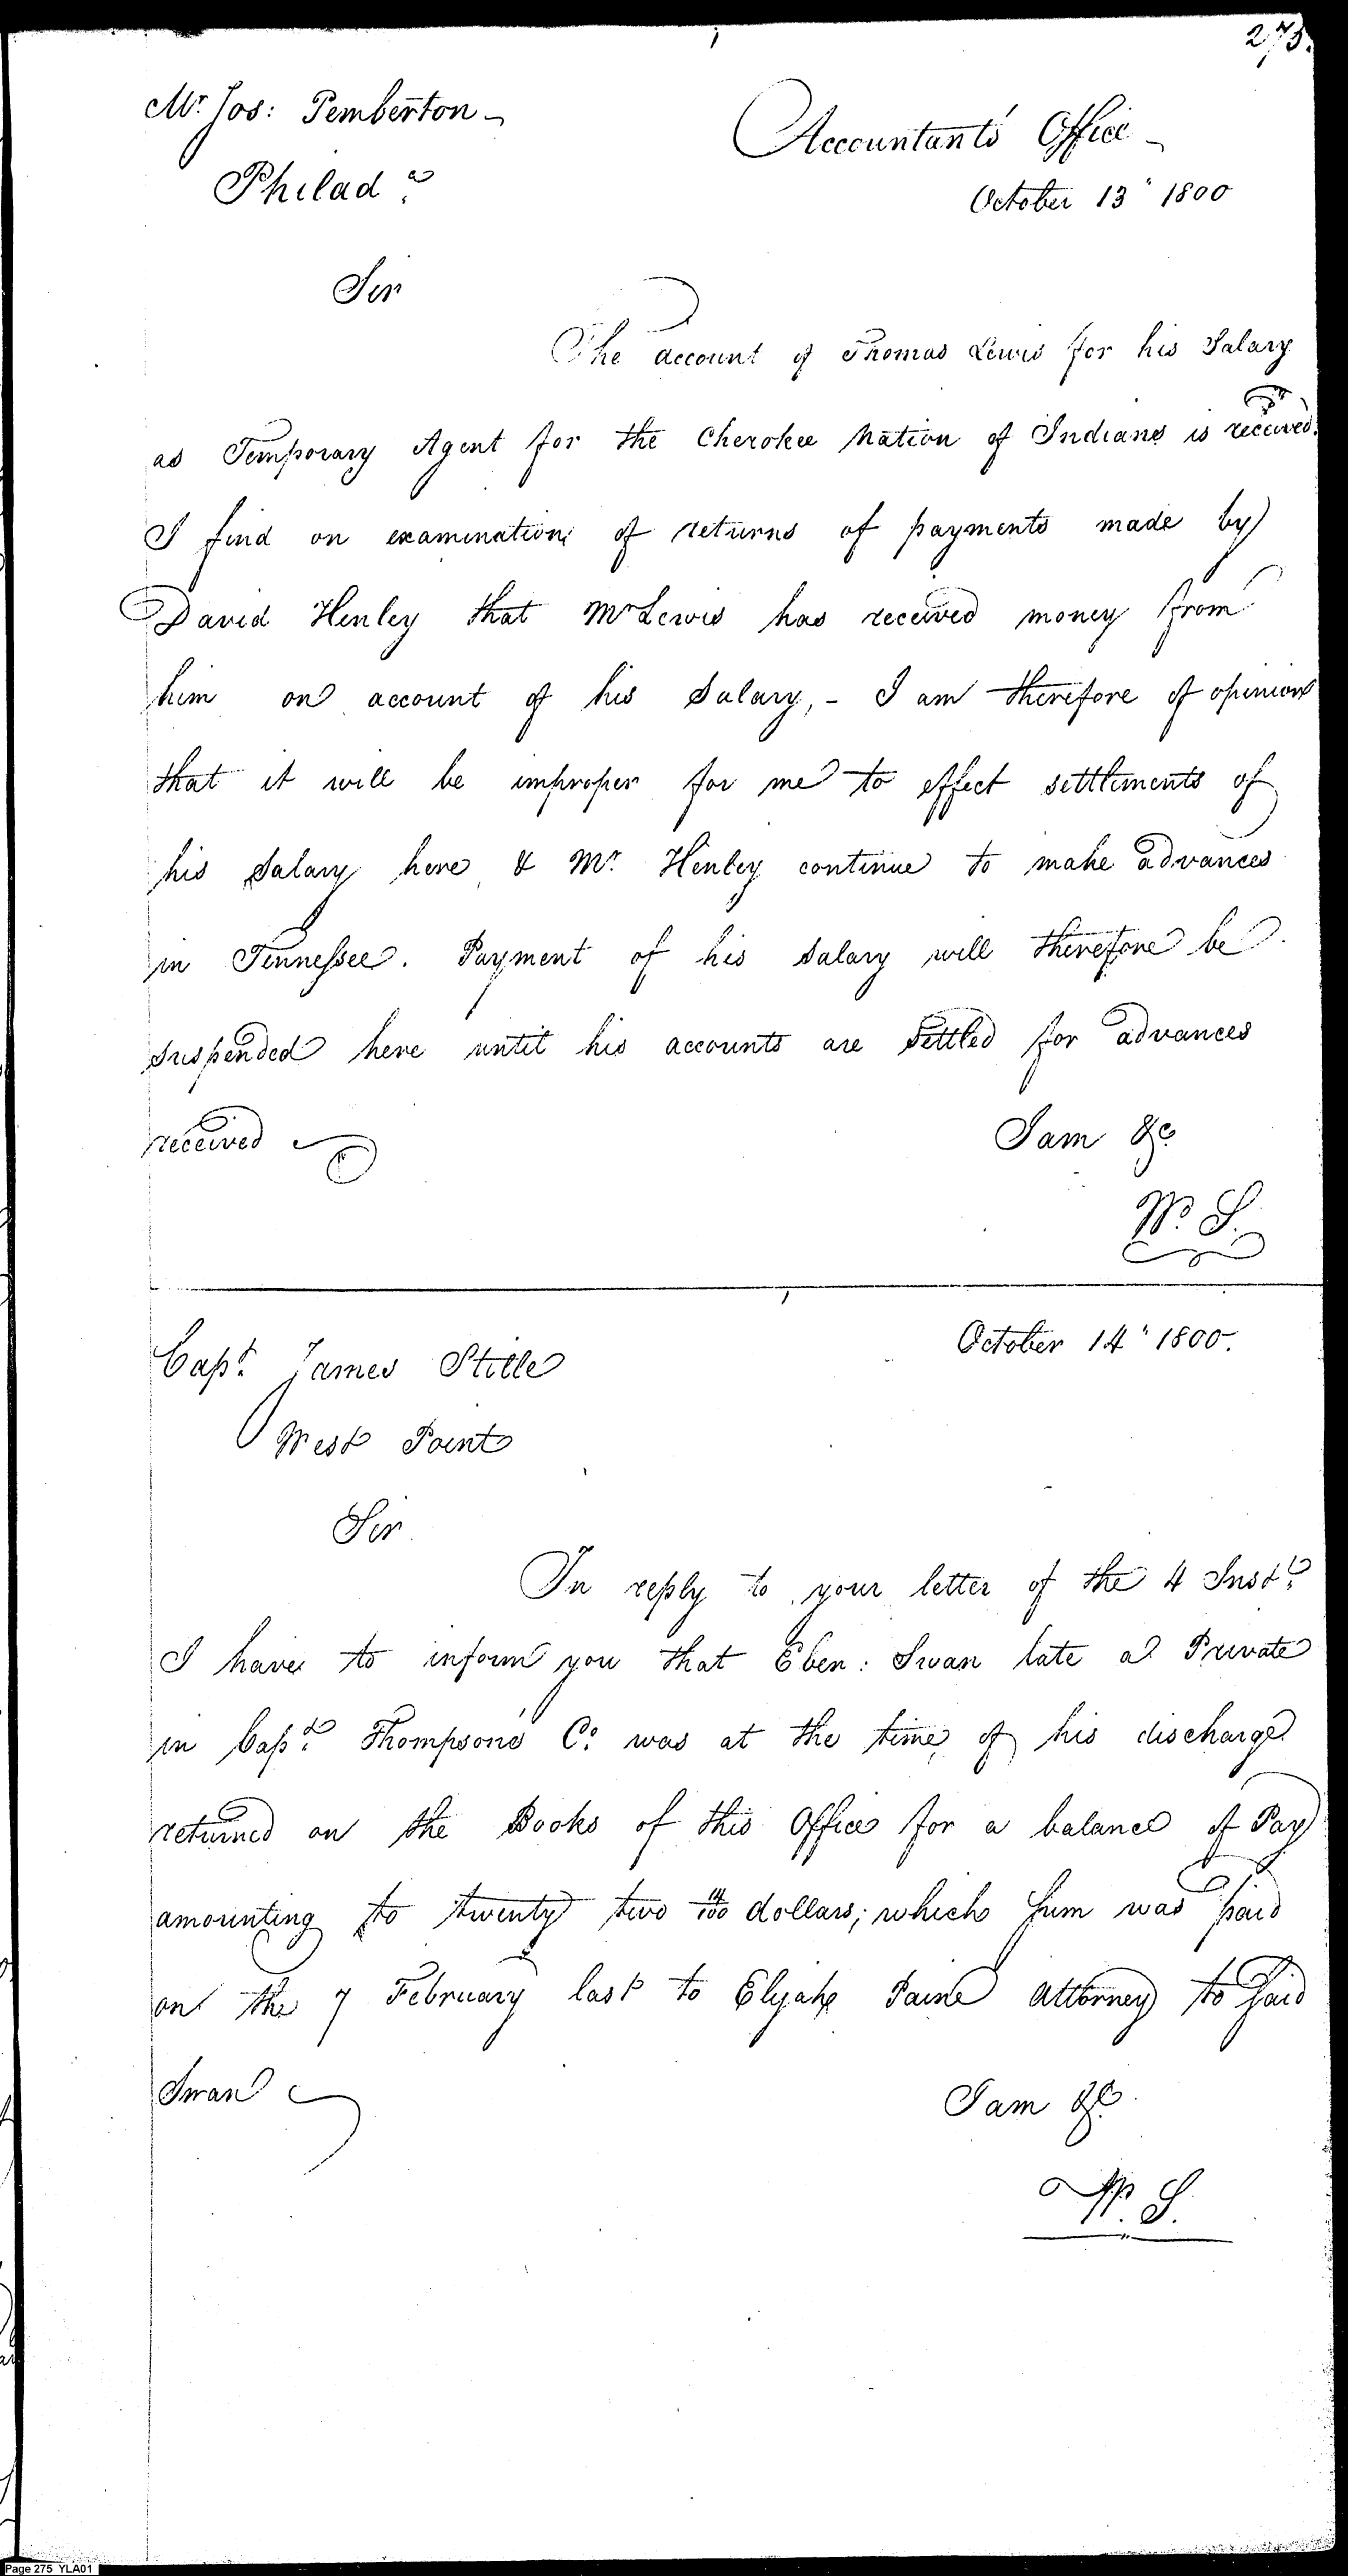 275.
Mr. Jos: Pemberton
Philada.
Accountants Office
October 13" 1800
Sir
The account of Thomas Lewis for his Salary
as Temporary Agent for the Cherokee Nation of Indians is received.
I find on examination of returns of payments made by
David Henley that Mr Lewis has received money from
him on account of his Salary, - I am therefore of opinion
that it will be improper for me to effect settlements of
his Salary here & Mr. Henley continue to make advances
in Tennessee. Payment of his Salary will therefore be
suspended here until his accounts are settled for advances
received
I am &c.
W. S.
October 14" 1800.
Capt. James Stille
West Point
Sir
In reply to your letter of the 4 Inst.
I have to inform you that Eben: Swan late a Private
in Capt. Thompsons Co. was at the time of his discharge
returned on the Books of this Office for a balance of Pay
amounting to twenty two 14/100 dollars; which sum was paid
on the 7 February last to Elijah Paine Attorney to said
Swan
I am &c.
W. S.
Page 275 YLA01